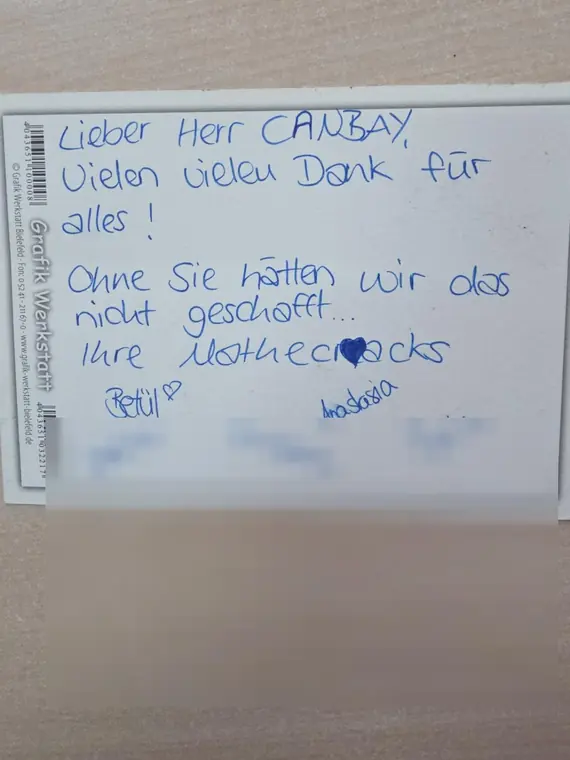 Lieber Herr CANBAY,
Vielen vielen Dank für
alles !
Ohne Sie hätten wir das
nicht geschafft...
Ihre Mathecracks
Betül
Anastasia
Grafik Werkstatt
© Grafik Werkstatt Bielefeld · Fon: 0 52 41 - 211 67-0 · www.grafik-werkstatt-bielefeld.de